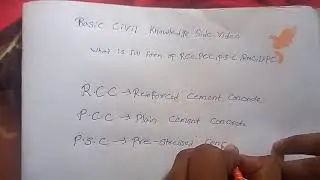 Basic Civil Knowledge Side Video
What is full form of R.C.C, P.C.C, P.S.C,
R.C.C → Reinforced Cement Concrete
P.C.C → Plain Cement Concrete
P.S.C → Pre-stressed Conc